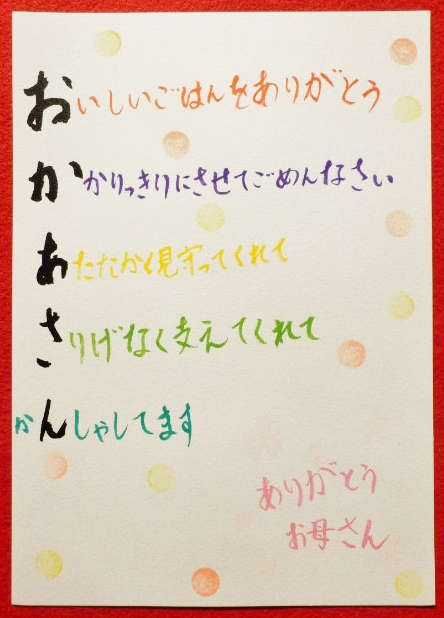 おいしいごはんをありがとう
かかりっきりにさせてごめんなさい
あたたかく見守ってくれて
さりげなく支えてくれて
かんしゃしてます
ありがとう
お母さん